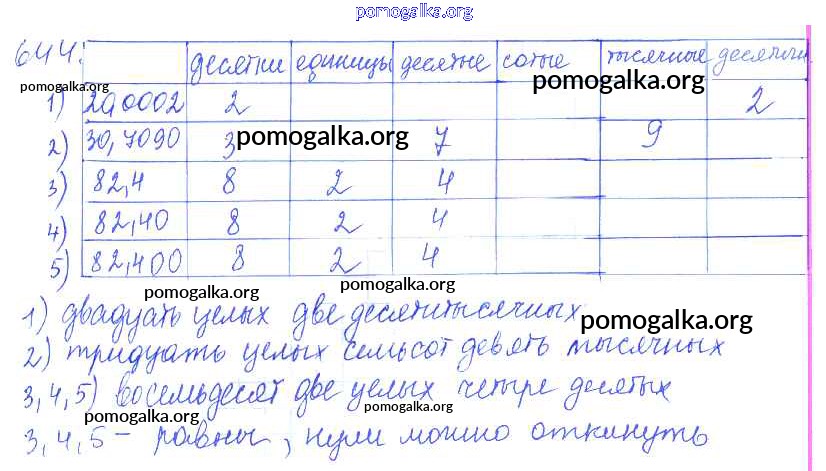 pomogalka.org
644.
десятки единицы десятые сотые тысячные десятичн
pomogalka.org pomogalka.org
1) 20,0002 2 2
2) 30,7090 3 pomogalka.org 7 9
3) 82,4 8 2 4
4) 82,40 8 2 4
5) 82,400 8 2 4
pomogalka.org pomogalka.org
1) двадцать целых две десятитысячных
pomogalka.org
2) тридцать целых семьсот девять тысячных
3,4,5) восемьдесят две целых четыре десятых
pomogalka.org
3,4,5 - равны, нули можно откинуть